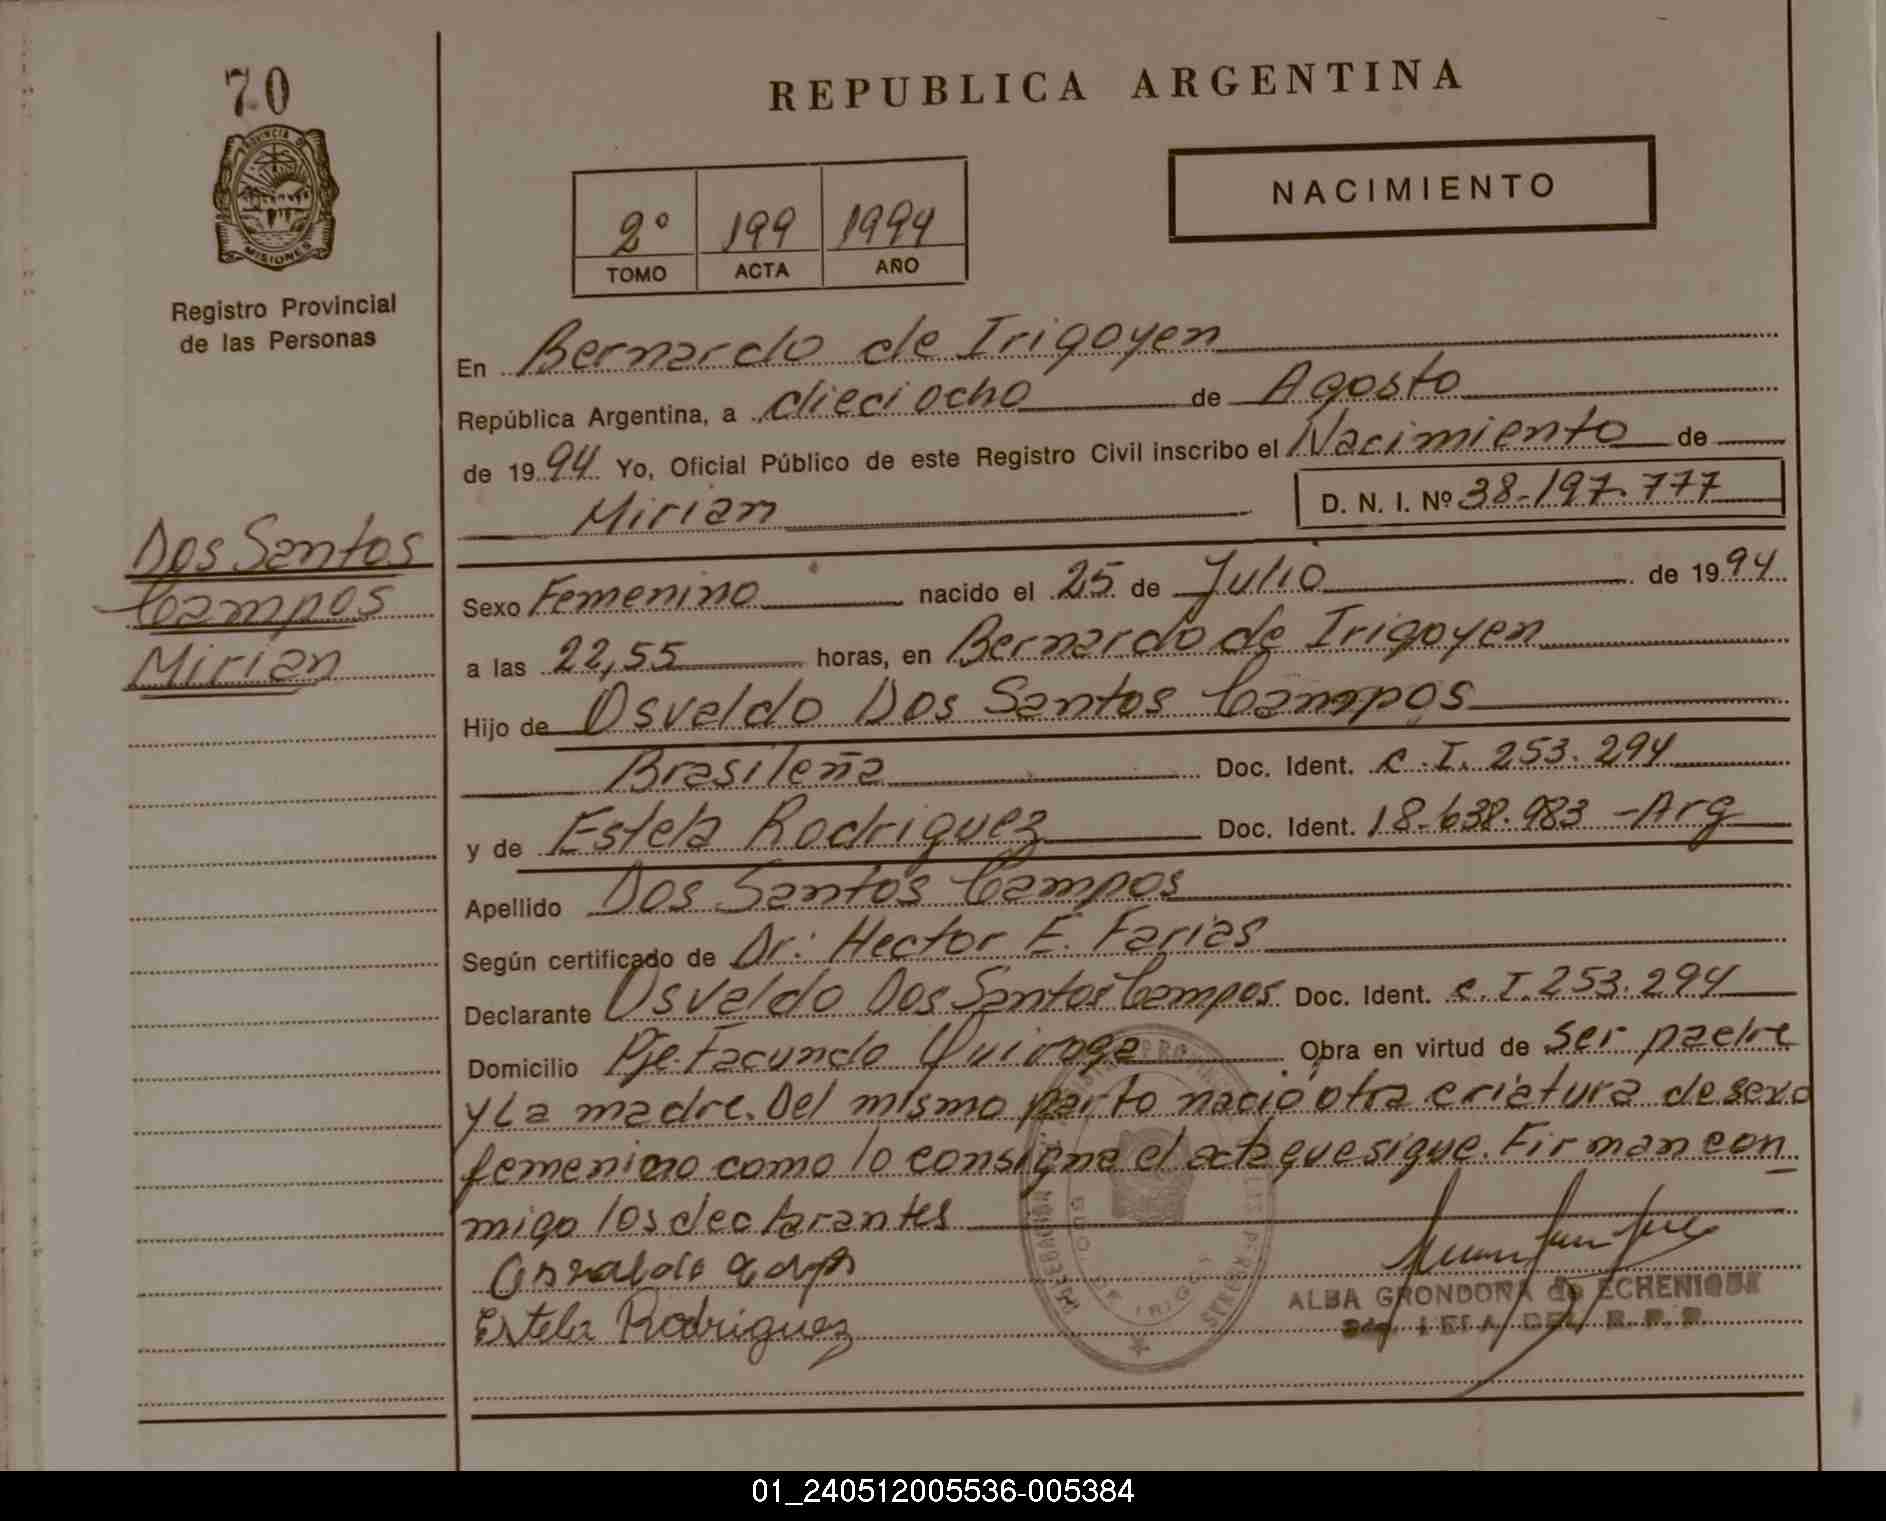 70
PROVINCIA D
MISIONES
Registro Provincial
de las Personas
Dos Santos
Campos
Mirian
REPUBLICA ARGENTINA
NACIMIENTO
2º 199 1994
TOMO ACTA AÑO
En Bernardo de Irigoyen
República Argentina, a dieciocho de Agosto
de 1994 Yo, Oficial Público de este Registro Civil inscribo el Nacimiento de
Mirian D. N. I. Nº 38-197.777
Sexo Femenino nacido el 25 de Julio de 1994
a las 22,55 horas, en Bernardo de Irigoyen
Hijo de Osvaldo Dos Santos Campos
Brasileña Doc. Ident. C.I. 253.294
y de Estela Rodriguez Doc. Ident. 18.638.983 -Arg
Apellido Dos Santos Campos
Según certificado de Dr: Hector E. Farias
Declarante Osvaldo Dos Santos Campos Doc. Ident. C.I. 253.294
Domicilio Pje. Facundo Quiroga Obra en virtud de ser padre
y La madre. Del mismo parto nació otra criatura de sexo
femenino como lo consigna el acta que sigue. Firman con
migo los declarantes
Osvaldo
Estela Rodriguez
ALBA GRONDONA de ECHENIQUE
DEL R. P. P.
01_240512005536-005384